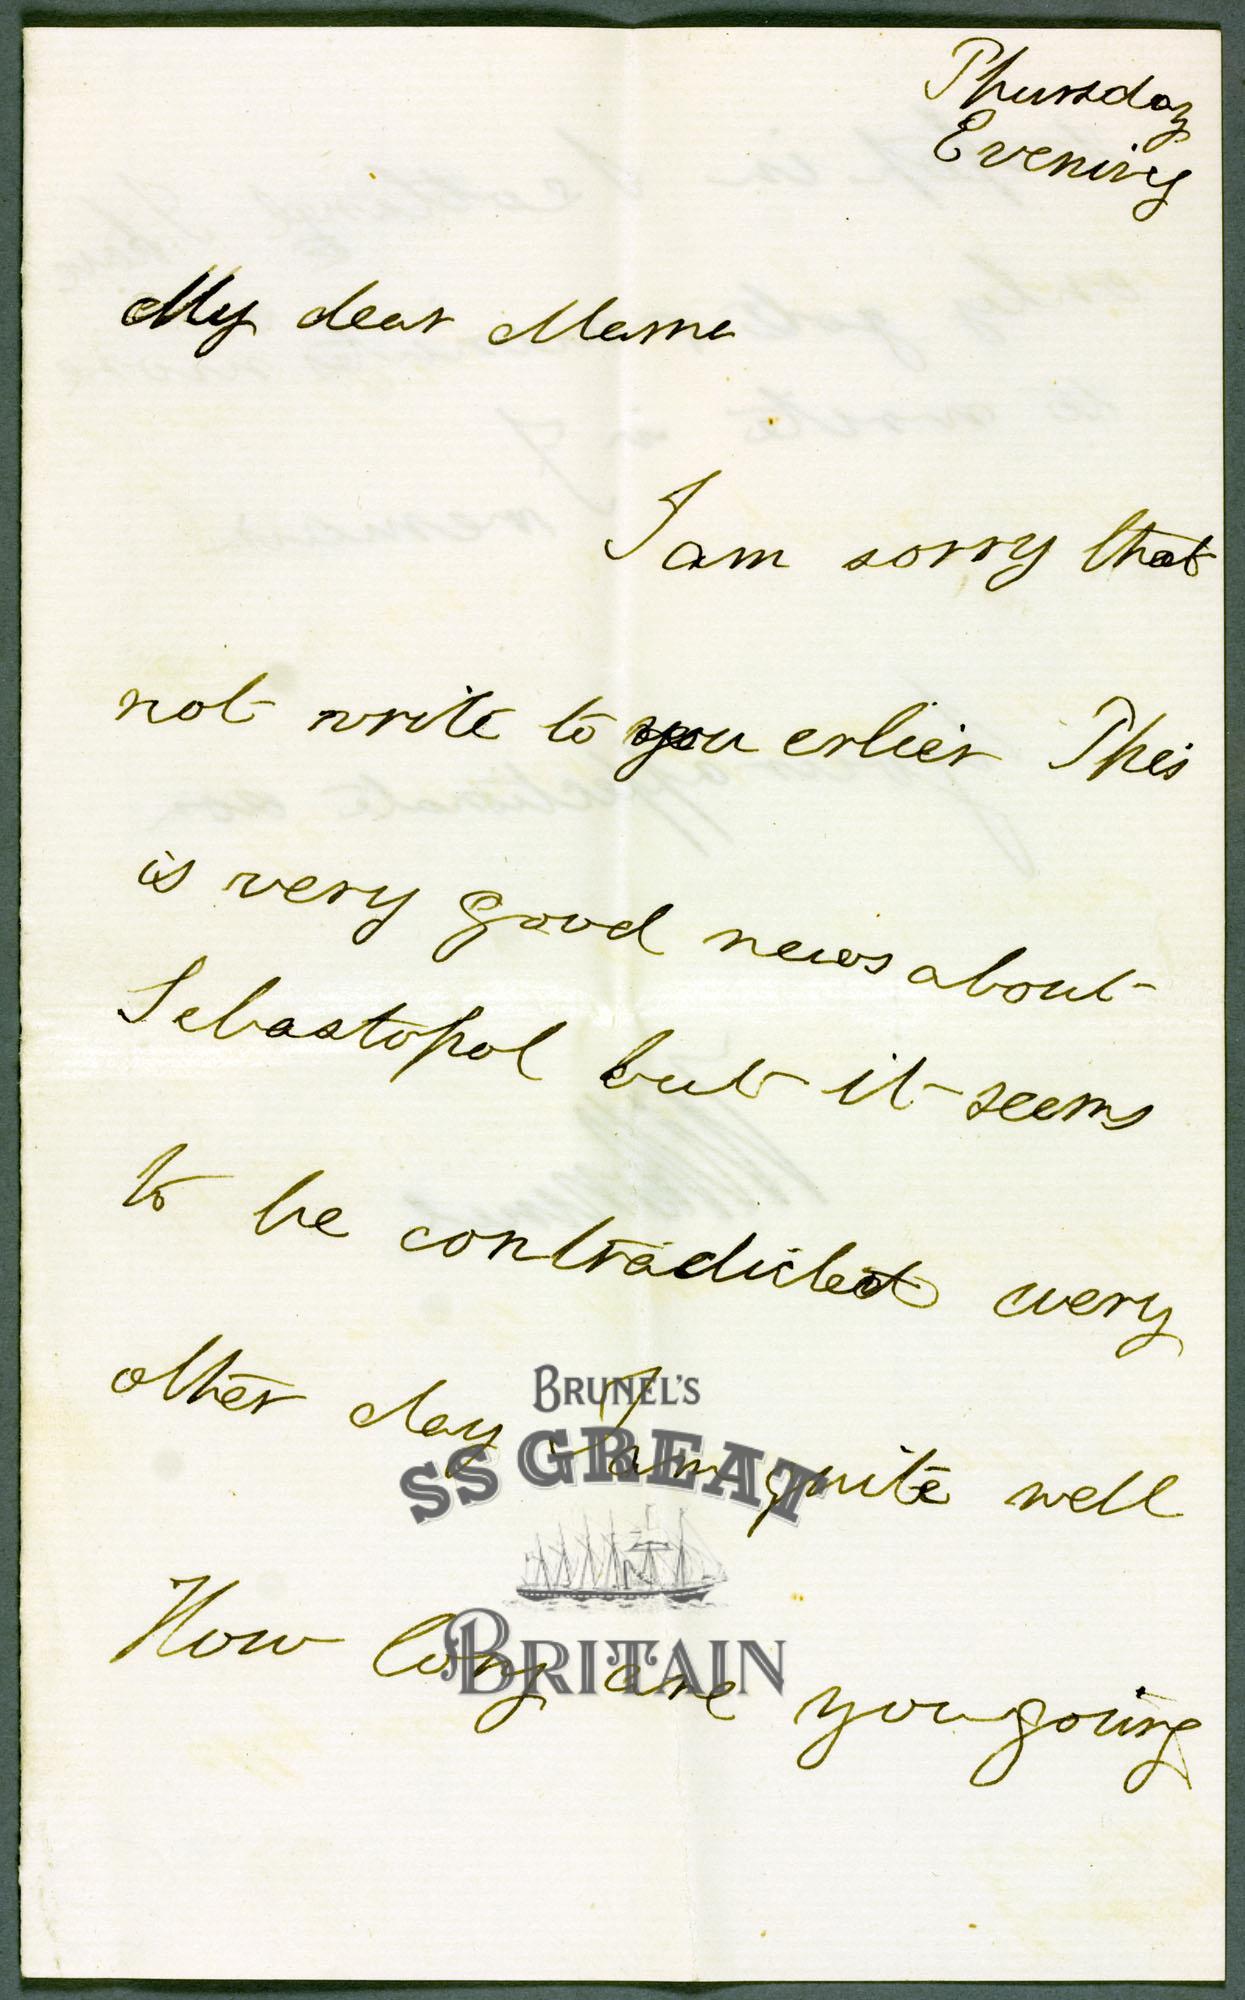 Thursday
Evening
My dear Mama
I am sorry that
not write to you erlier This
is very good news about
Sebastopol but it seems
to be contradicted every
other day I am quite well
How long are you going
BRUNEL'S
SS GREAT
BRITAIN